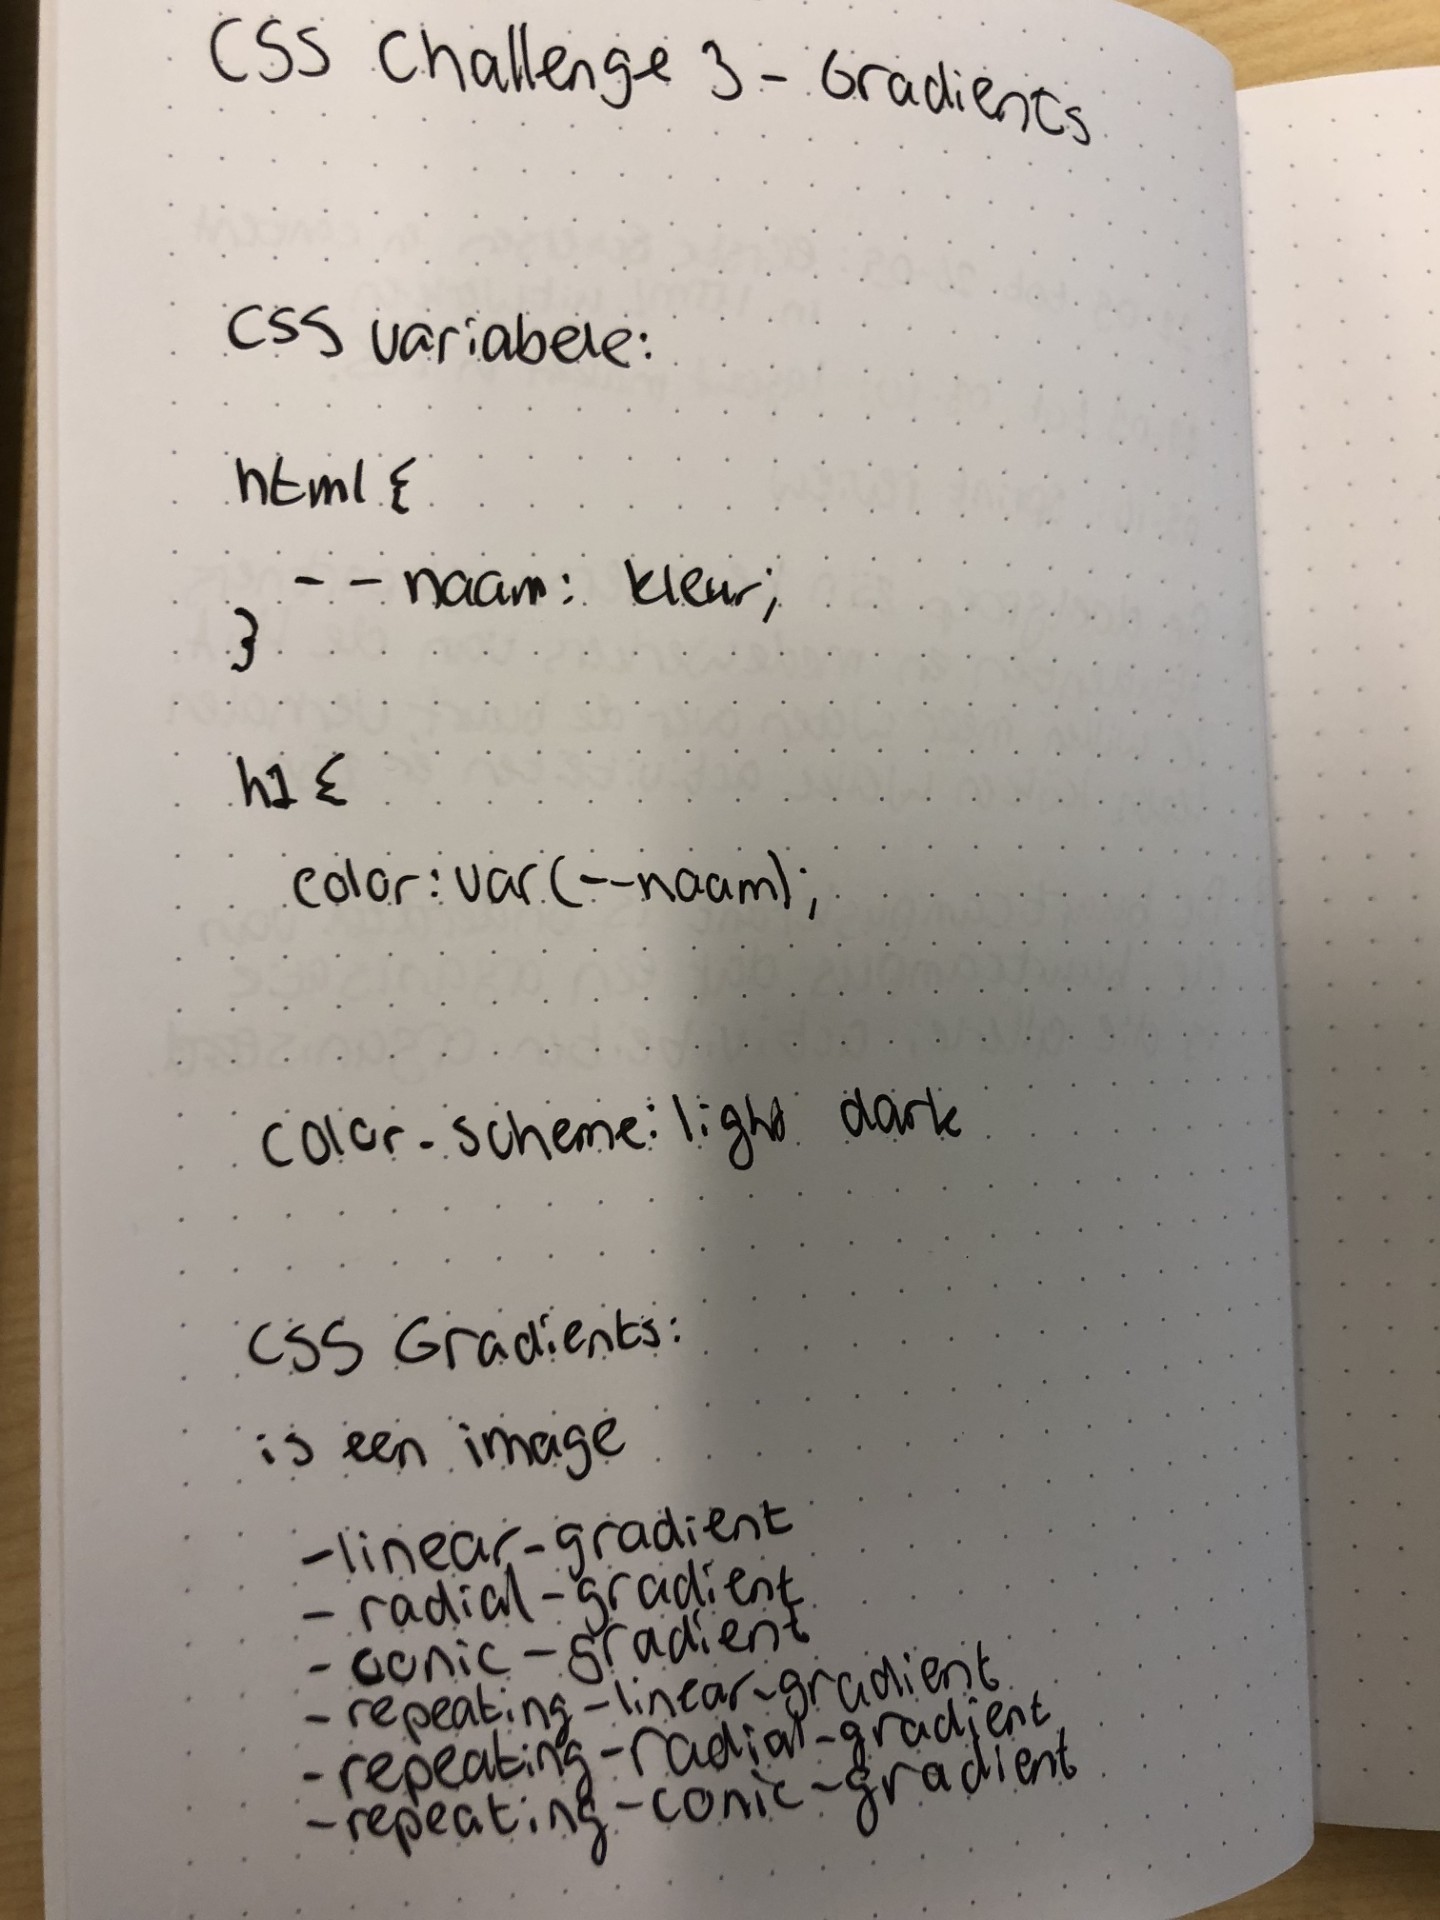 CSS Challenge 3 - Gradients
CSS variabele:
html {
-- naam: kleur;
}
h1 {
color: var(--naam);
color-scheme: light dark
CSS Gradients:
is een image
- linear-gradient
- radial-gradient
- conic-gradient
- repeating-linear-gradient
- repeating-radial-gradient
- repeating-conic-gradient